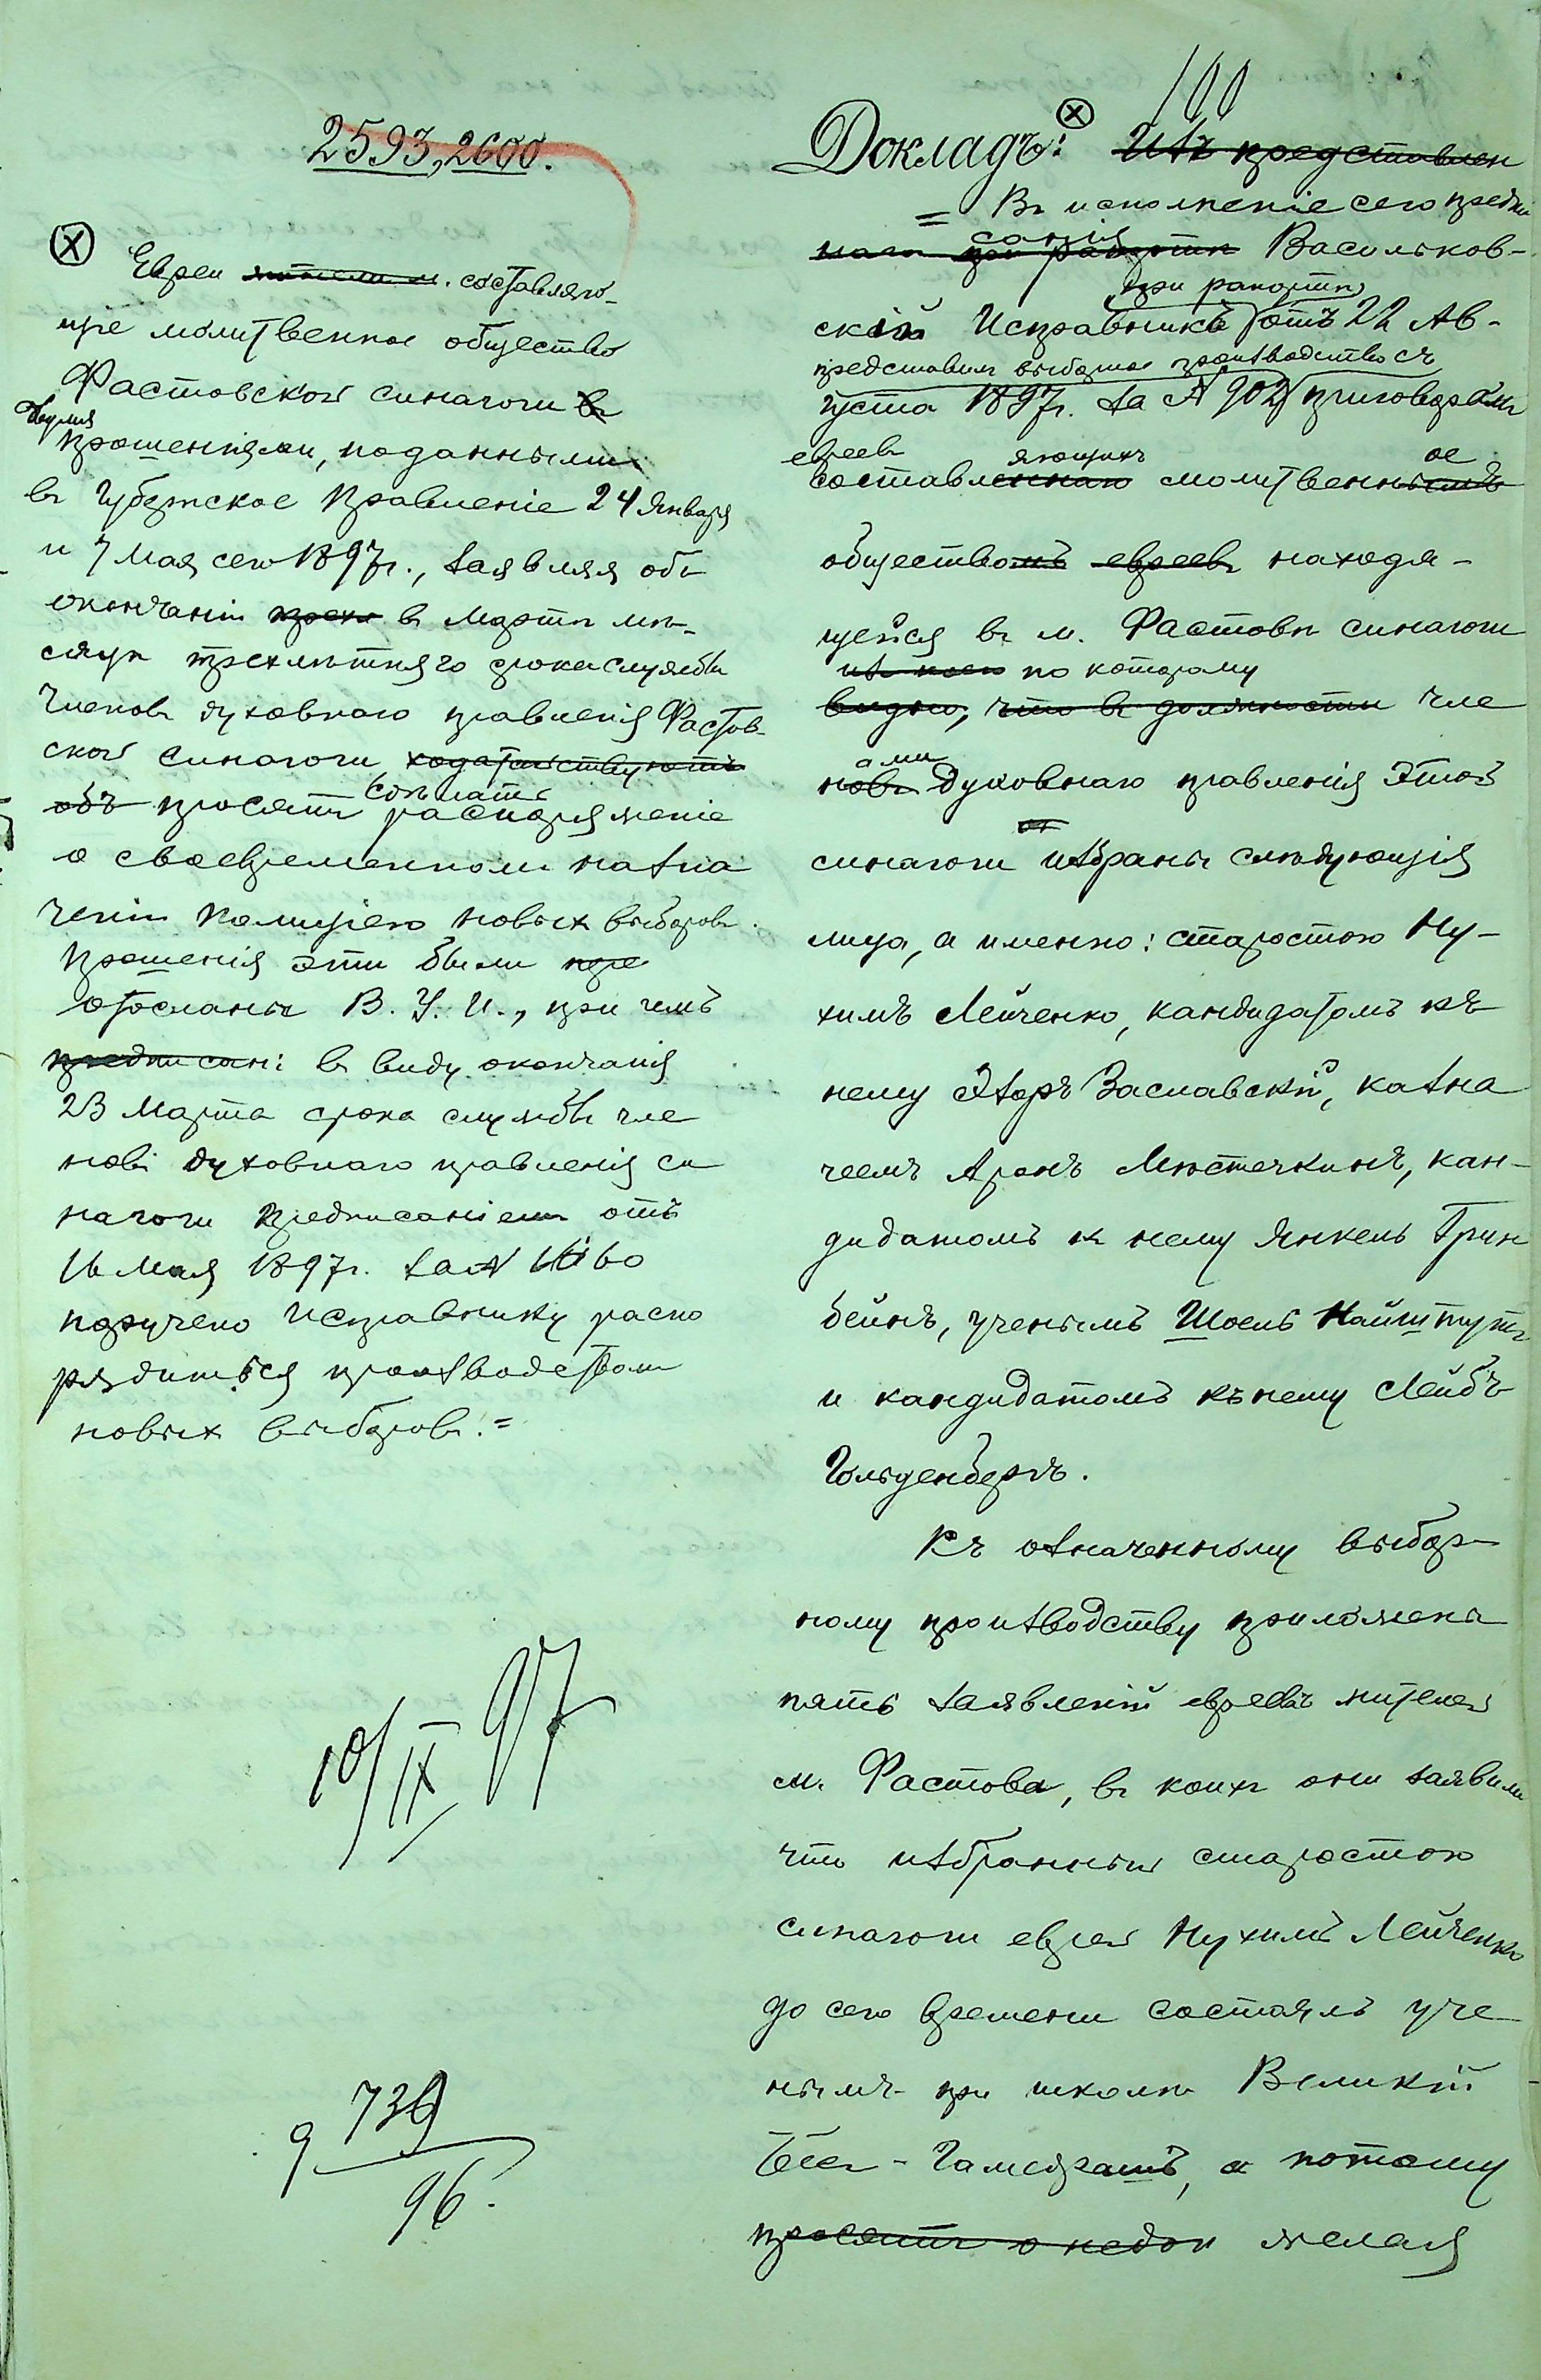 2593, 2600.
Ⓧ Евреи жители м. составляю-
щіе молитвенное общество
Фастовской синагоги в
двумя
прошеніями, поданными
въ Губернское Правленіе 24 Января
и 7 Мая сего 1897г., заявляя объ
окончаніи въ Мартѣ мѣ-
сяцѣ трехлѣтняго срока службы
членовъ духовнаго правленія Фастов-
ской синагоги ходатайствуютъ
объ просятъ сдѣлать распоряженіе
о своевременномъ назна
ченіи Комисіею новыхъ выборовъ.
Прошенія эти были пре
отосланы В. У. И., при чемъ
предписан: въ виду окончанія
23 Марта срока службы чле
новъ духовнаго правленія си
нагоги предписаніемъ отъ
16 Мая 1897г. за №
поручено Исправнику распо
рядиться производствомъ
новыхъ выборовъ.=
10/IX 97
9 739
96.
100
Докладъ: Ⓧ Изъ представлен
= Въ исполненіе сего предпи
санія
наго при рапортѣ Васильков-
при рапортѣ
скій Исправникъ отъ 22 Ав-
представилъ выборное производство съ
густа 1897г. за № 902 приговоромъ
евреевъ яющихъ ое
составленнаго молитвеннымъ
обществомъ евреевъ находя-
щейся въ м. Фастовѣ синагоги
изъ коего по которому
видно, что въ должности чле
ами
новъ духовнаго правленія этой
синагоги избраны слѣдующія
лица, а именно: старостою Ну-
химъ Лейченко, кандидатомъ къ
нему Азоръ Заславскій, казна
чеемъ Аронъ Мѣстечкинъ, кан-
дидатомъ къ нему Янкель Грин
бейнъ, ученымъ Шоель Найштутъ
и кандидатомъ къ нему Лейбъ
Гольденбергъ.
Къ означенному выбор-
ному производству приложены
пять заявленій евреевъ жителей
м. Фастова, въ коихъ они заявили
что избранный старостою
синагоги еврей Нухимъ Лейченко
до сего времени состоялъ уче-
нымъ при школѣ Великій
Бес-Гамедрашъ, а потому
просятъ о недоп желая